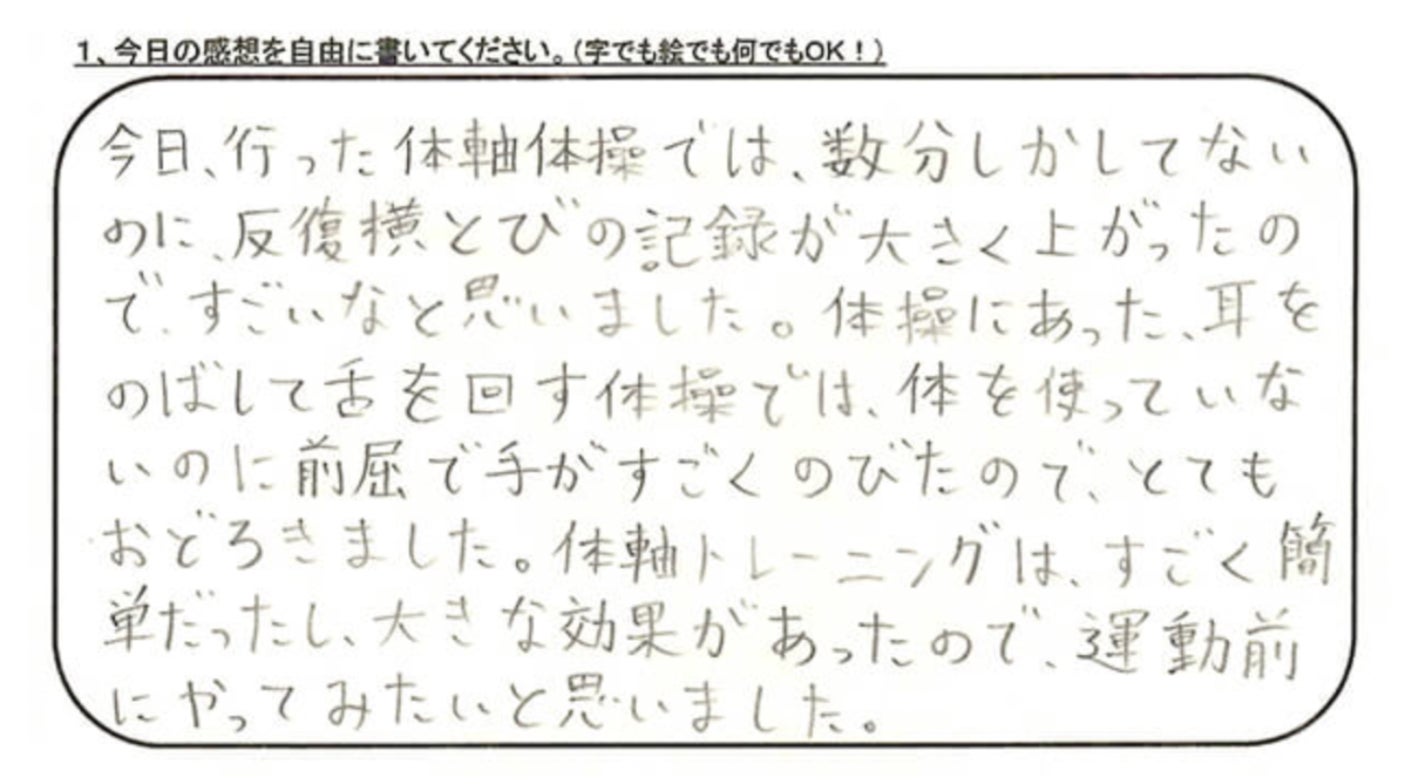 1、今日の感想を自由に書いてください。(字でも絵でも何でもOK！)
今日、行った体軸体操では、数分しかしてない
のに、反復横とびの記録が大きく上がったの
で、すごいなと思いました。体操にあった、耳を
のばして舌を回す体操では、体を使っていな
いのに前屈で手がすごくのびたので、とても
おどろきました。体軸トレーニングは、すごく簡
単だったし、大きな効果があったので、運動前
にやってみたいと思いました。